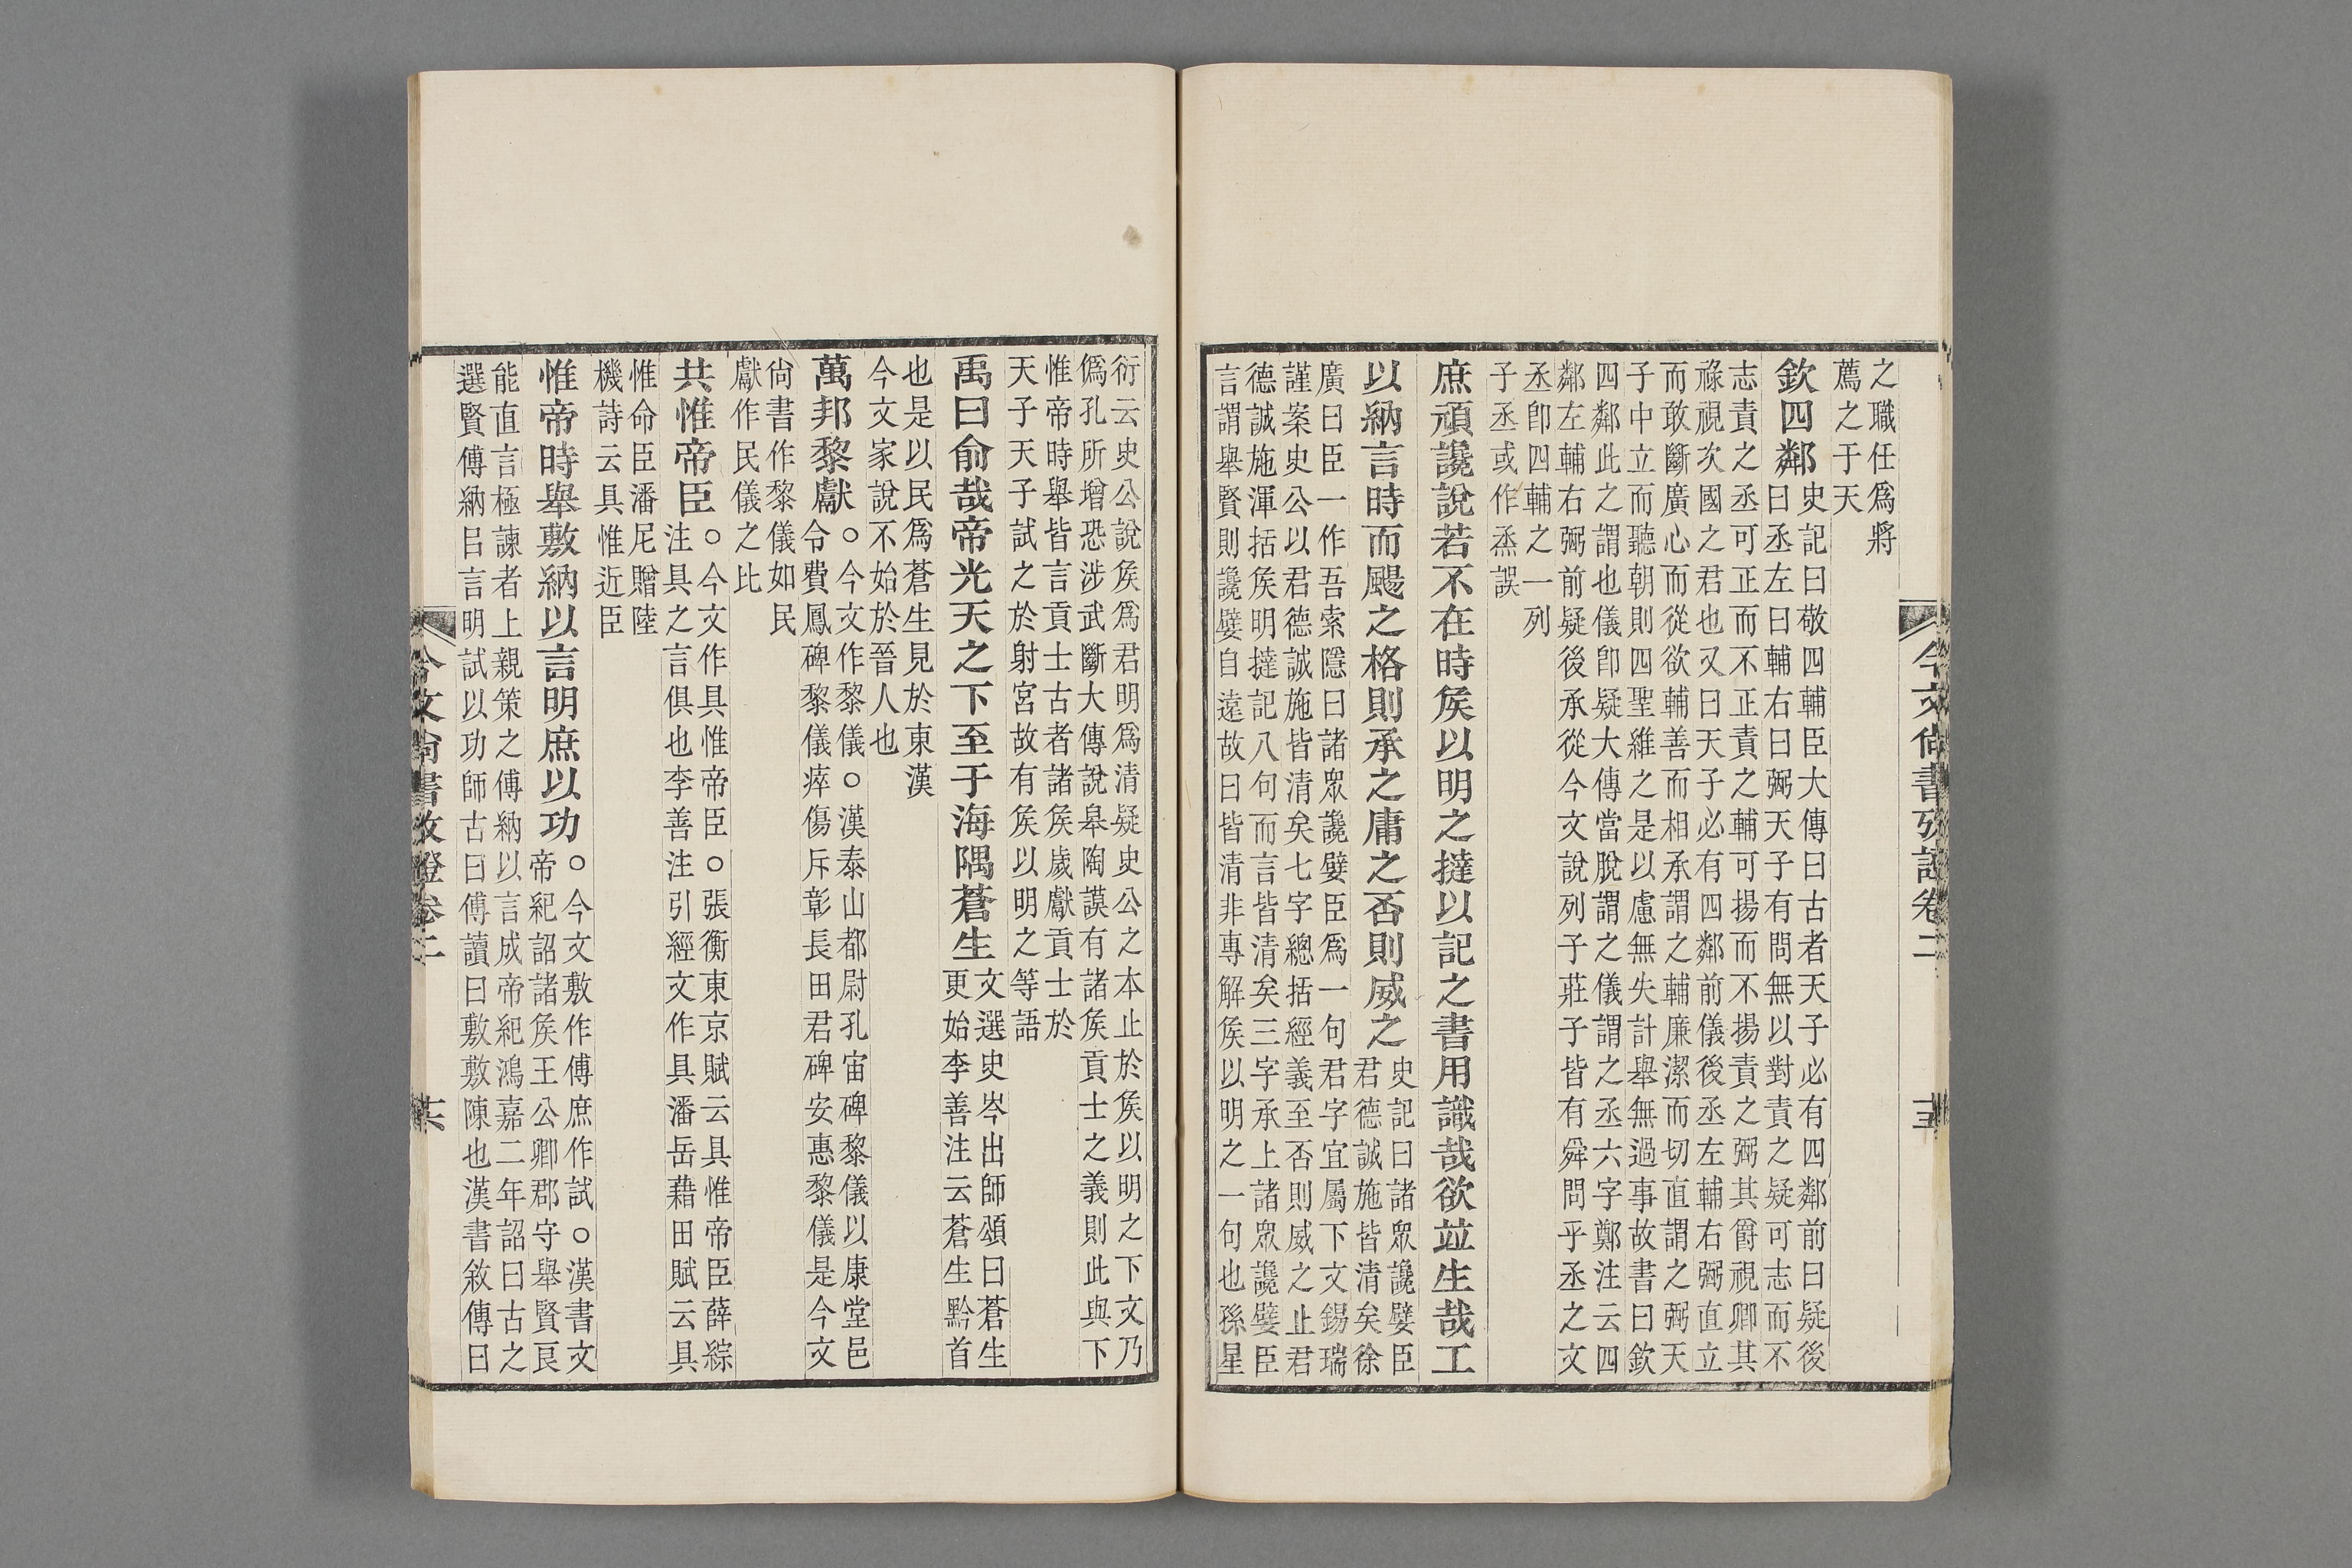 今文尚書攷證卷二
之職任爲將
薦之于天
欽四鄰
史記曰敬四輔臣大傳曰古者天子必有四鄰前曰疑後
曰丞左曰輔右曰弼天子有問無以對責之疑可志而不
志責之丞可正而不正責之輔可揚而不揚責之弼其爵視卿其
祿視次國之君也又曰天子必有四鄰前儀後丞左輔右弼直立
而敢斷廣心而從欲輔善而相承謂之輔廉潔而切直謂之弼天
子中立而聽朝則四聖維之是以慮無失計舉無過事故書曰欽
四鄰此之謂也儀卽疑大傳當脫謂之儀謂之丞六字鄭注云四
鄰左輔右弼前疑後承從今文說列子莊子皆有舜問乎丞之文
丞卽四輔之一列
子丞或作烝誤
庶頑讒說若不在時矦以明之撻以記之書用識哉欲竝生哉工
以納言時而颺之格則承之庸之否則威之
史記曰諸眾讒嬖臣
君德誠施皆清矣徐
廣曰臣一作吾索隱曰諸眾讒嬖臣爲一句君字宜屬下文錫瑞
謹案史公以君德誠施皆清矣七字總括經義至否則威之止君
德誠施渾括矦明撻記八句而言皆清矣三字承上諸眾讒嬖臣
言謂舉賢則讒嬖自遠故曰皆清非專解矦以明之一句也孫星
衍云史公說矦爲君明爲清疑史公之本止於矦以明之下文乃
僞孔所增恐涉武斷大傳說皋陶謨有諸矦貢士之義則此與下
惟帝時舉皆言貢士古者諸矦歲獻貢士於
天子天子試之於射宮故有矦以明之等語
禹曰俞哉帝光天之下至于海隅蒼生
文選史岑出師頌曰蒼生
更始李善注云蒼生黔首
也是以民爲蒼生見於東漢
今文家說不始於晉人也
萬邦黎獻
○今文作黎儀○漢泰山都尉孔宙碑黎儀以康堂邑
令費鳳碑黎儀瘁傷斥彰長田君碑安惠黎儀是今文
尙書作黎儀如民
獻作民儀之比
共惟帝臣
○今文作具惟帝臣○張衡東京賦云具惟帝臣薛綜
注具之言俱也李善注引經文作具潘岳藉田賦云具
惟命臣潘尼贈陸
機詩云具惟近臣
惟帝時舉敷納以言明庶以功
○今文敷作傅庶作試○漢書文
帝紀詔諸矦王公卿郡守舉賢良
能直言極諫者上親策之傅納以言成帝紀鴻嘉二年詔曰古之
選賢傅納㠯言明試以功師古曰傅讀曰敷敷陳也漢書敘傳曰
今文尚書攷證卷二